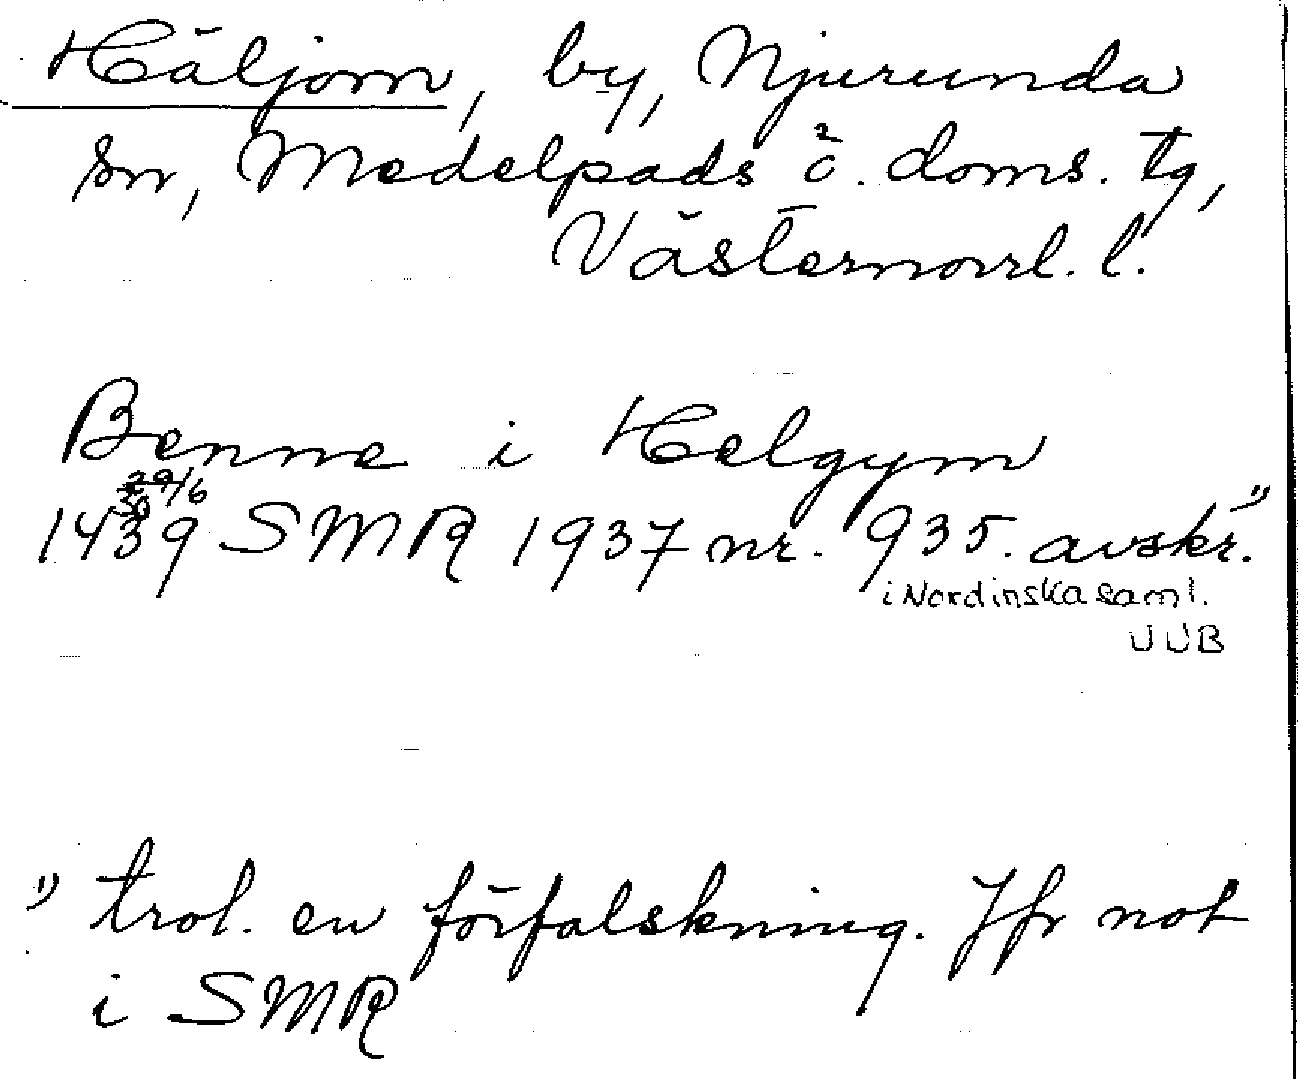 Häljom, by, Njurunda
sn, Medelpads ö. doms. tg,
Västernorrl. l.
Benne i Helgym
29/6
1439 SMR 1937 nr. 935. avskr. 1)
i Nordinska saml.
UUB
1) trol. en förfalskning. Jfr not
i SMR